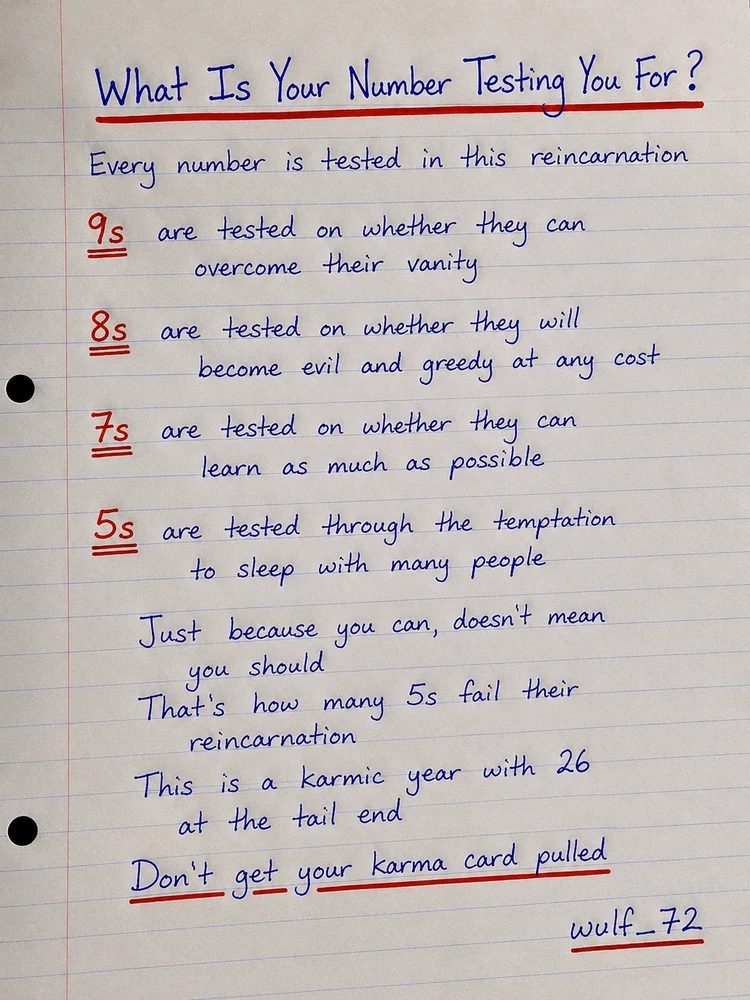 What Is Your Number Testing You For?
Every number is tested in this reincarnation
9s are tested on whether they can
overcome their vanity
8s are tested on whether they will
become evil and greedy at any cost
7s are tested on whether they can
learn as much as possible
5s are tested through the temptation
to sleep with many people
Just because you can, doesn't mean
you should
That's how many 5s fail their
reincarnation
This is a karmic year with 26
at the tail end
Don't get your karma card pulled
wulf_72